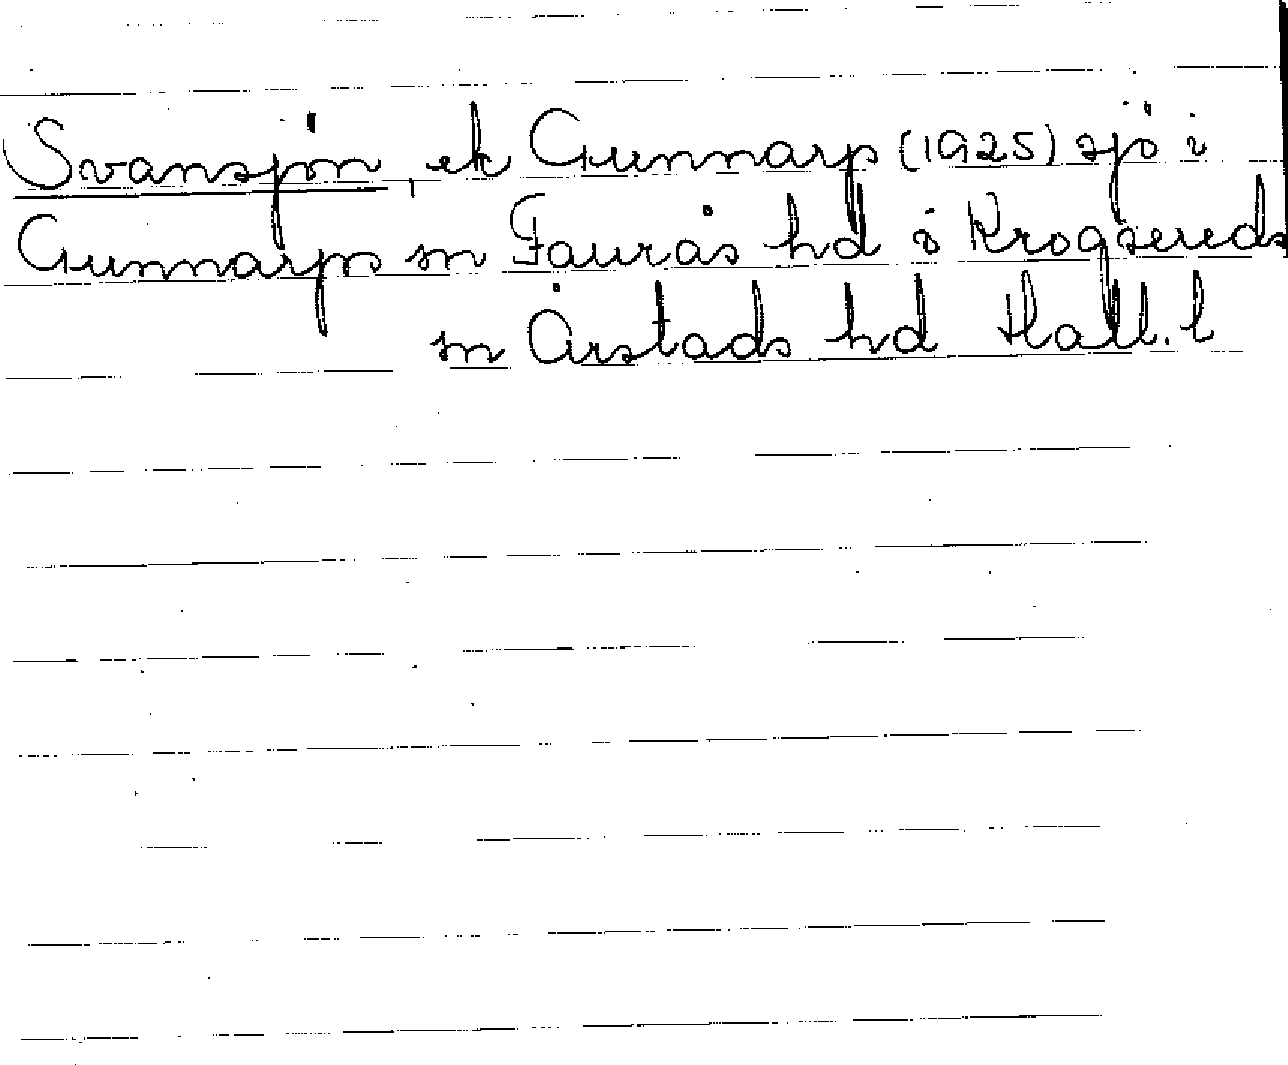 Svansjön, ek Gunnarp (1925) sjö i
Gunnarps sn Faurås hd o Krogsereds
sn Årstads hd Hall. l